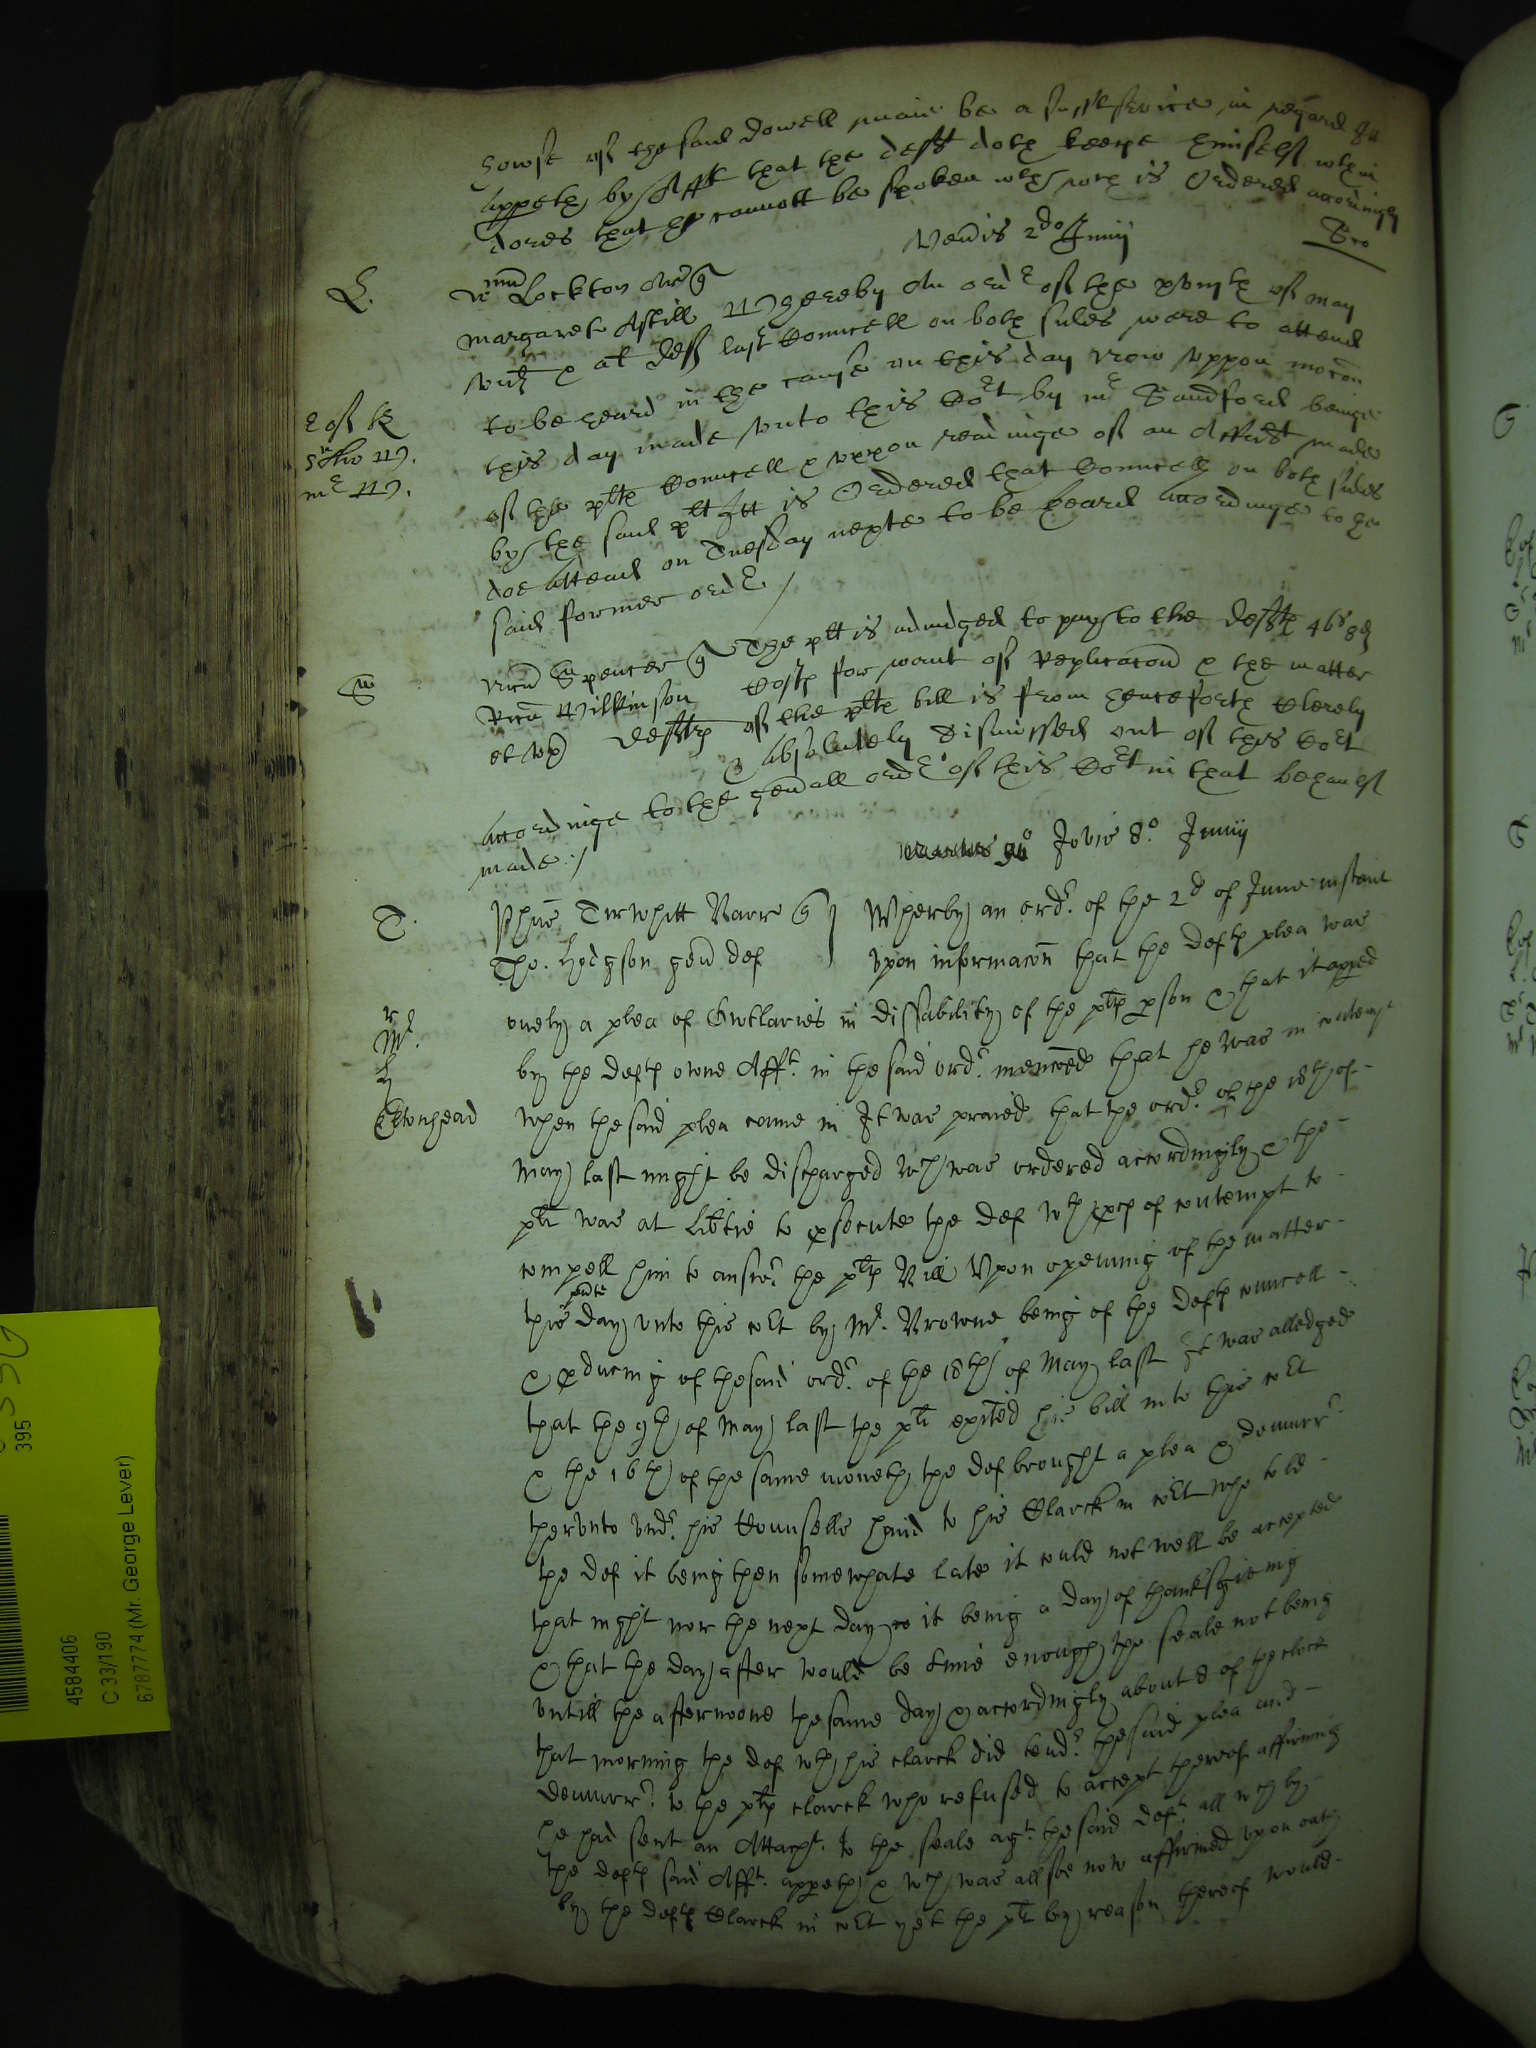 howse of the said Dowell maie be a suff<sup>t</sup> service in regard Itt
appeth by Afft that the deft doth keepe himself wthin
dores that he cannott be spoken wth wch is Ordered accordingly
Veneris 2do Junij
L.
Lockton
Margarett Askill Whereby an ordr of the xvmth of May
last Councell on both sides were to attend
to be heard in the cause on this day Now uppon mocon
this day made unto this Cort by mr Sandford beinge
of the plts Councell & uppon readinge of an Affidt made
by the said plt Itt is Ordered that Councell on both sides
doe attend on Tuesday nexte to be heard accordinge to the
said former ordr /
Spencer The plt is adiudged to pay to the defts 46s 8d
Ricu Wilkinson Costs for want of Replicacon & the matter
et ux defts of the plts bill is from henceforth clerely
& absolutely dismissed out of this Cort
accordinge to the genall ordr of this Cort in that behaulf
made :/
Jovis 8o Junij
T.
Phus Tirwhitt Barr
Tho. Hodgson gen def
Wherby an ordr. of the 2d of June instant
vpon informacon that the defts plea was
onely a plea of Owtlaries in dissability of the plts pson & that it appeed
by the defts owne Afft. in the said ordr. menconed that he was in contempt
when the said plea came in It was praied that the ordr. of the 18th of
May last might be discharged wch was ordered accordingly & the
plt was at libtie to psecute the def wth pces of contempt to
compell him to answr. the plts Bill Vpon opening of the matter
this psente day vnto this cort by Mr. Browne being of the defts councell
& pducing of the said ordr. of the 18th of May last It was alledged
that the 9th of May last the plt exited his bill into this cort
& the 16th of the same moneth the def brought a plea & demurrr
thervnto vndr. his Counsells hand to his Clarck in cort who told
the def it being then somewhate late it could not well be accepted
that night nor the next day it being a day of thanksgieving
& that the day after would be time enough the seale not being
vntill the afternoone the same day & accordingly about 8 of the clock
that morning the def wth his clarck did tendr. the said plea and
demurrr. to the plts clarck who refused to accept thereof affirming
he had sent an Attacht. to the seale agt. the said deft. all wch by
the defts said Afft. appeeth & wch was allsoe now affirmed vpon oath
by the defts Clarck in cort yet the plt by reason thereof would
Mr.
4584406
C 33/190
6787774 (Mr. George Lever)
395